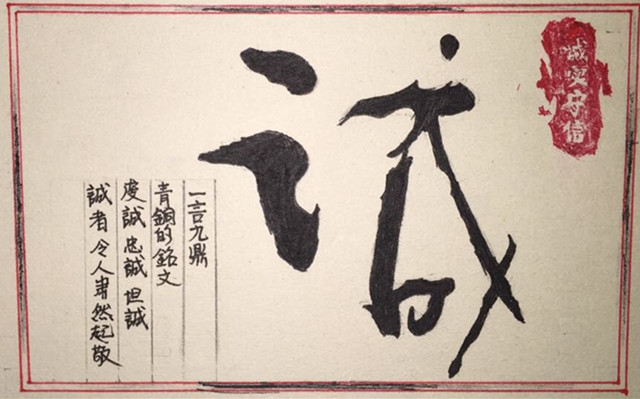 诚实守信
诚
一言九鼎
青銅的銘文
虔誠 忠誠 坦誠
誠者 令人肅然起敬